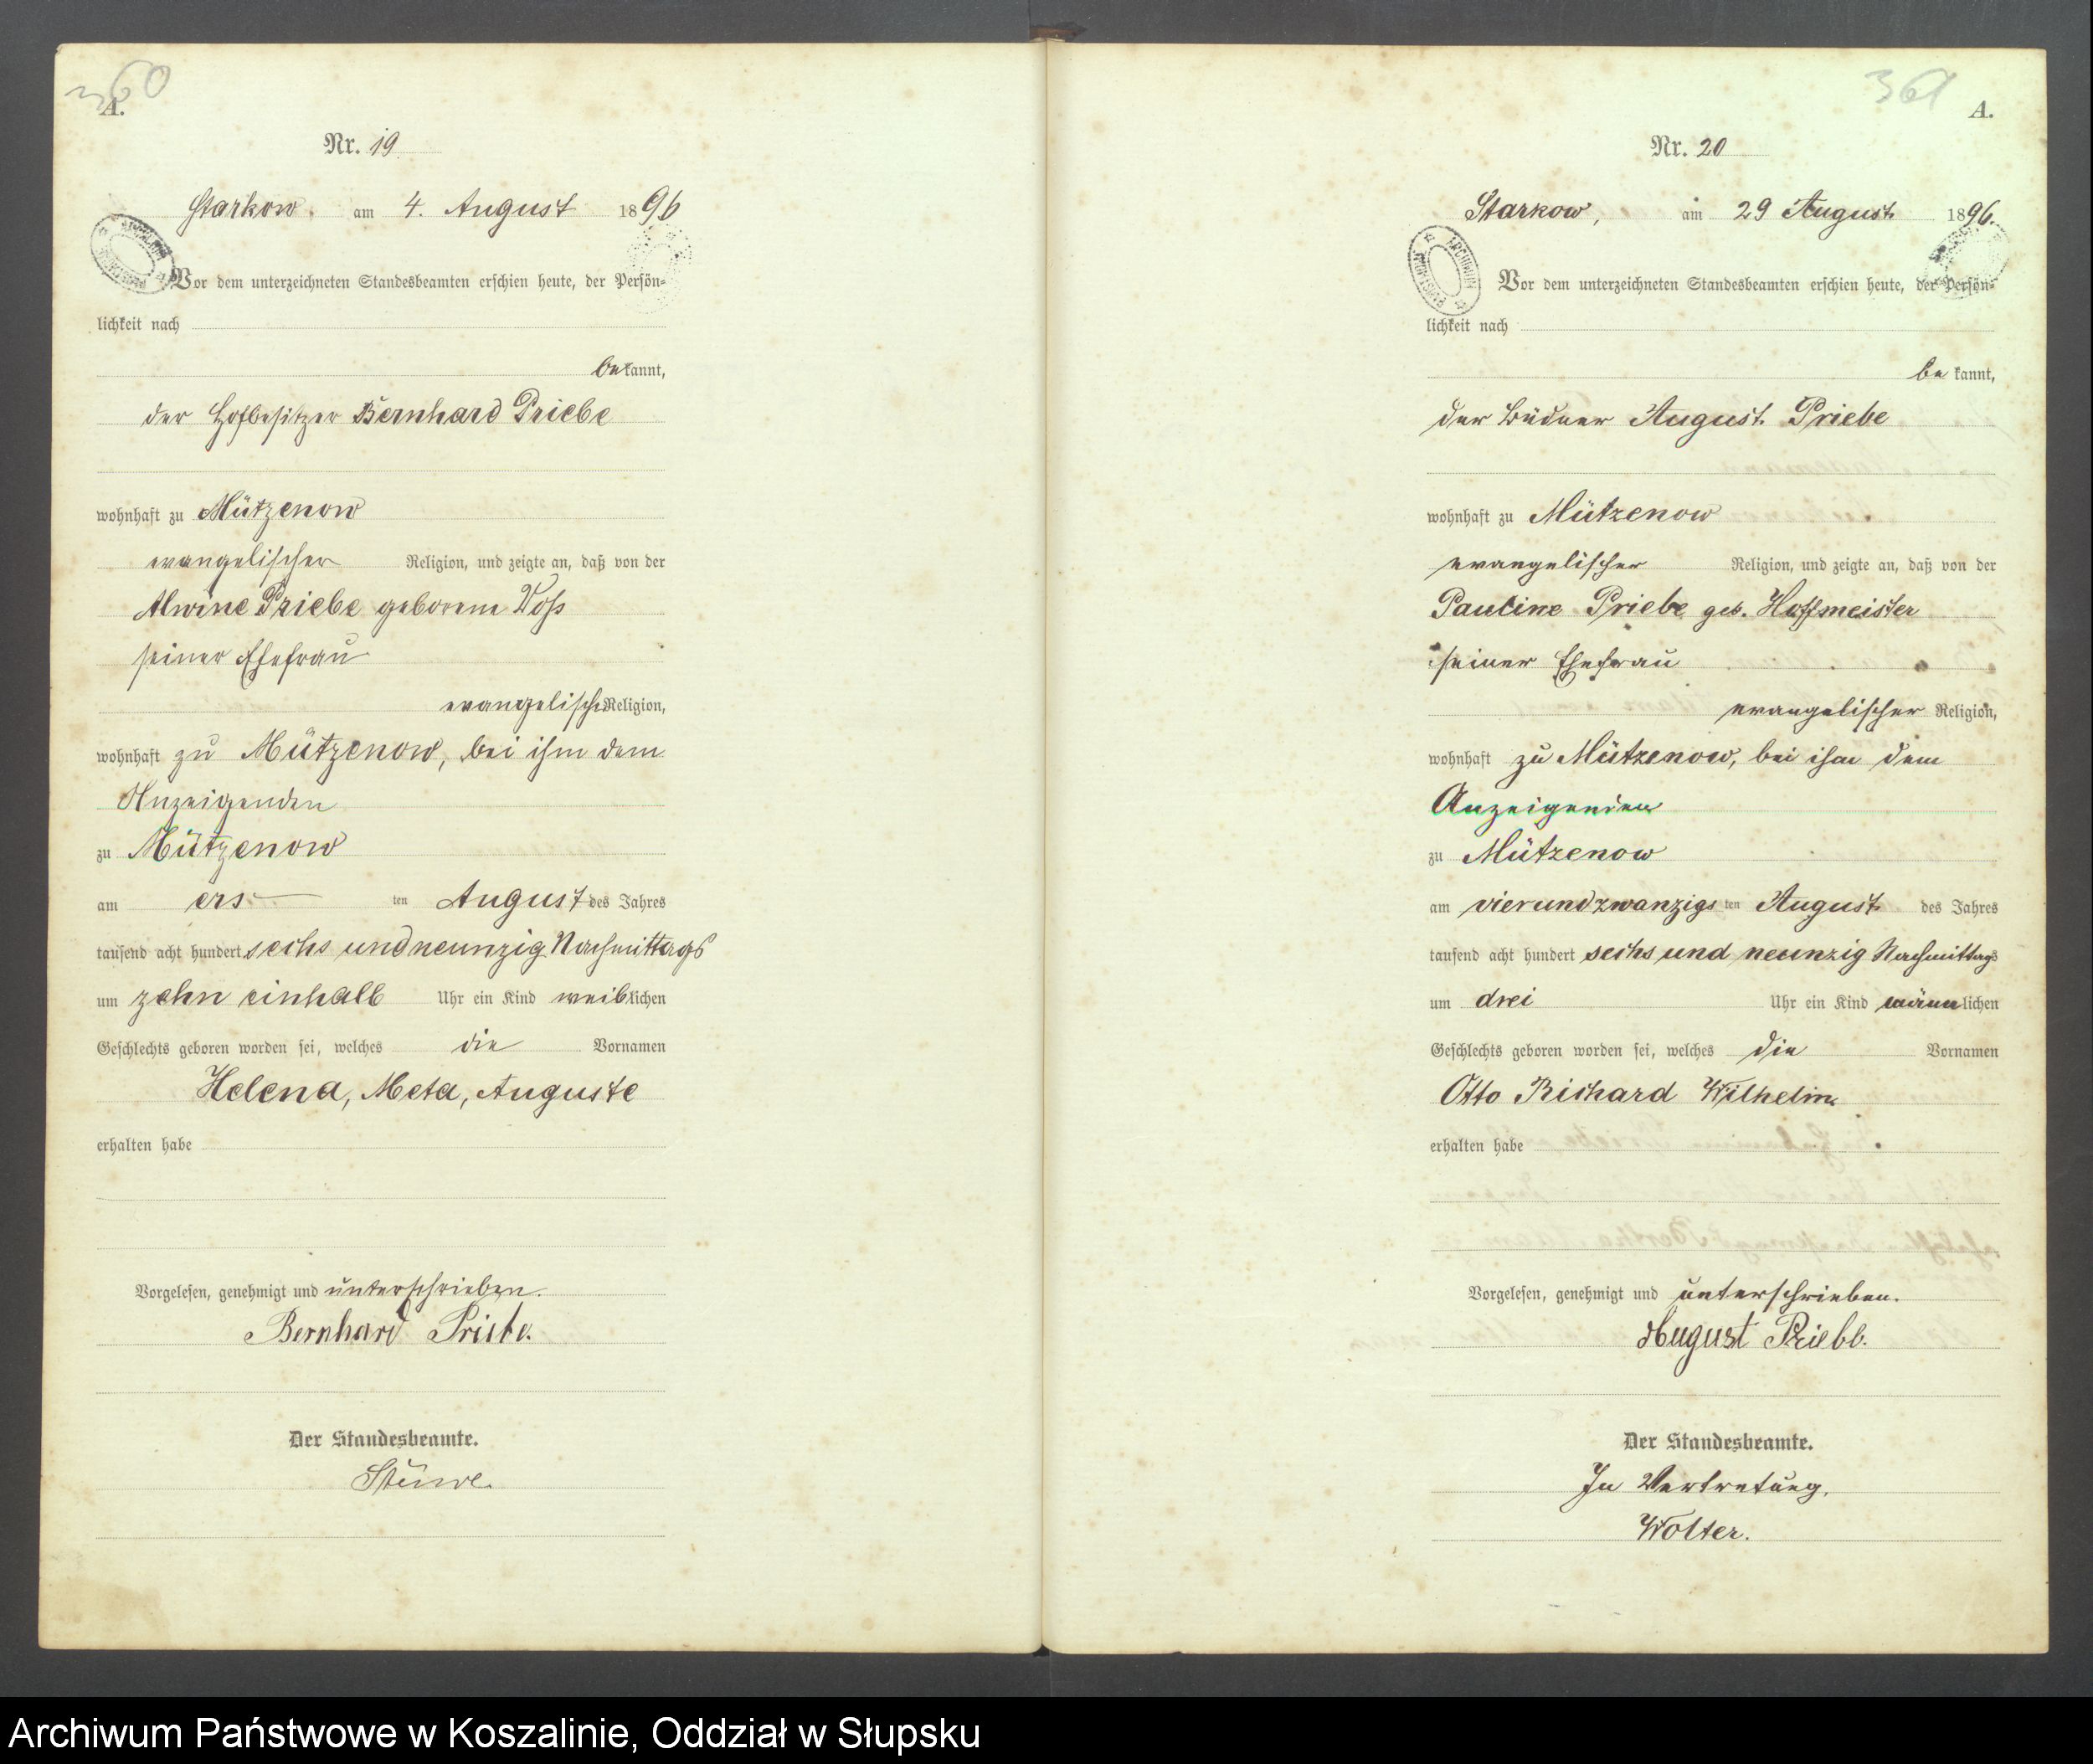 360
A.
Nr. 19
Starkow. am 4. August 1896
Vor dem unterzeichneten Standesbeamten erschien heute, der Persön-
lichkeit nach
bekannt,
der Hofbesitzer Bernhard Priebe
wohnhaft zu Mützenow
evangelischer Religion, und zeigte an, daß von der
Alwine Priebe geborene Voß
seiner Ehefrau
evangelischer Religion,
wohnhaft zu Mützenow, bei ihm dem
Anzeigenden
zu Mützenow
am ers ten August des Jahres
tausend acht hundert sechs und neunzig Nachmittags
um zehn einhalb Uhr ein Kind weiblichen
Geschlechts geboren worden sei, welches die Vornamen
Helena, Meta, Auguste
erhalten habe
Vorgelesen, genehmigt und unterschrieben.
Bernhard Priebe.
Der Standesbeamte.
Stüwe.
361
A.
Nr. 20
Starkow, am 29 August 1896.
ARCHIWUM
Vor dem unterzeichneten Standesbeamten erschien heute, der Persön-
lichkeit nach
bekannt,
der Büdner August Priebe
wohnhaft zu Mützenow
evangelischer Religion, und zeigte an, daß von der
Pauline Priebe geb. Hoffmeister
seiner Ehefrau
evangelischer Religion,
wohnhaft zu Mützenow, bei ihm dem
Anzeigenden
zu Mützenow
am vierundzwanzigs ten August des Jahres
tausend acht hundert sechs und neunzig Nachmittags
um drei Uhr ein Kind männlichen
Geschlechts geboren worden sei, welches die Vornamen
Otto Richard Wilhelm
erhalten habe
Vorgelesen, genehmigt und unterschrieben.
August Priebe.
Der Standesbeamte.
In Vertretung.
Wolter.
Archiwum Państwowe w Koszalinie, Oddział w Słupsku